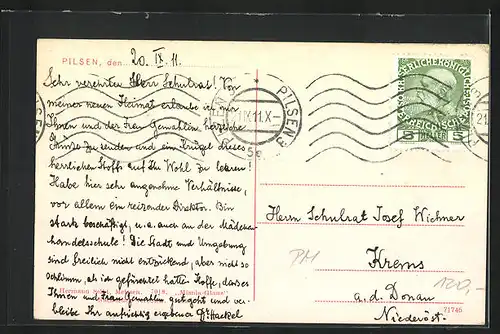 PILSEN, den 20. IX. 11.
Sehr verehrter Herr Schulrat! Von
meiner neuen Heimat erlaube ich mir
Ihnen und der Frau Gemahlin herzliche
Grüße zu senden und ein Krügel dieses
herrlichen Stoffs auf Ihr Wohl zu leeren!
Habe hier sehr angenehme Verhältnisse,
vor allem ein reizender Direktor. Bin
stark beschäftigt, u. a. auch an der Mädchen-
handelsschule! Die Stadt und Umgebung
sind freilich nicht entzückend, aber nicht so
schlimm, als ich gefürchtet hatte. Hoffe, daß es
Ihnen und Frau Gemahlin gut geht und ver-
bleibe Ihr aufrichtig ergebener Hackel
Hermann Meissen. 1918.
PILSEN 3
IX.11.X-
5c
PILSEN
KAISERLICHE KÖNIGLICHE
ÖSTERREICHISCHE POST
5 HELLER 5
Herrn Schulrat Josef Wichner
PM
Krems
120,-
a. d. Donau
Niederöst.
71746